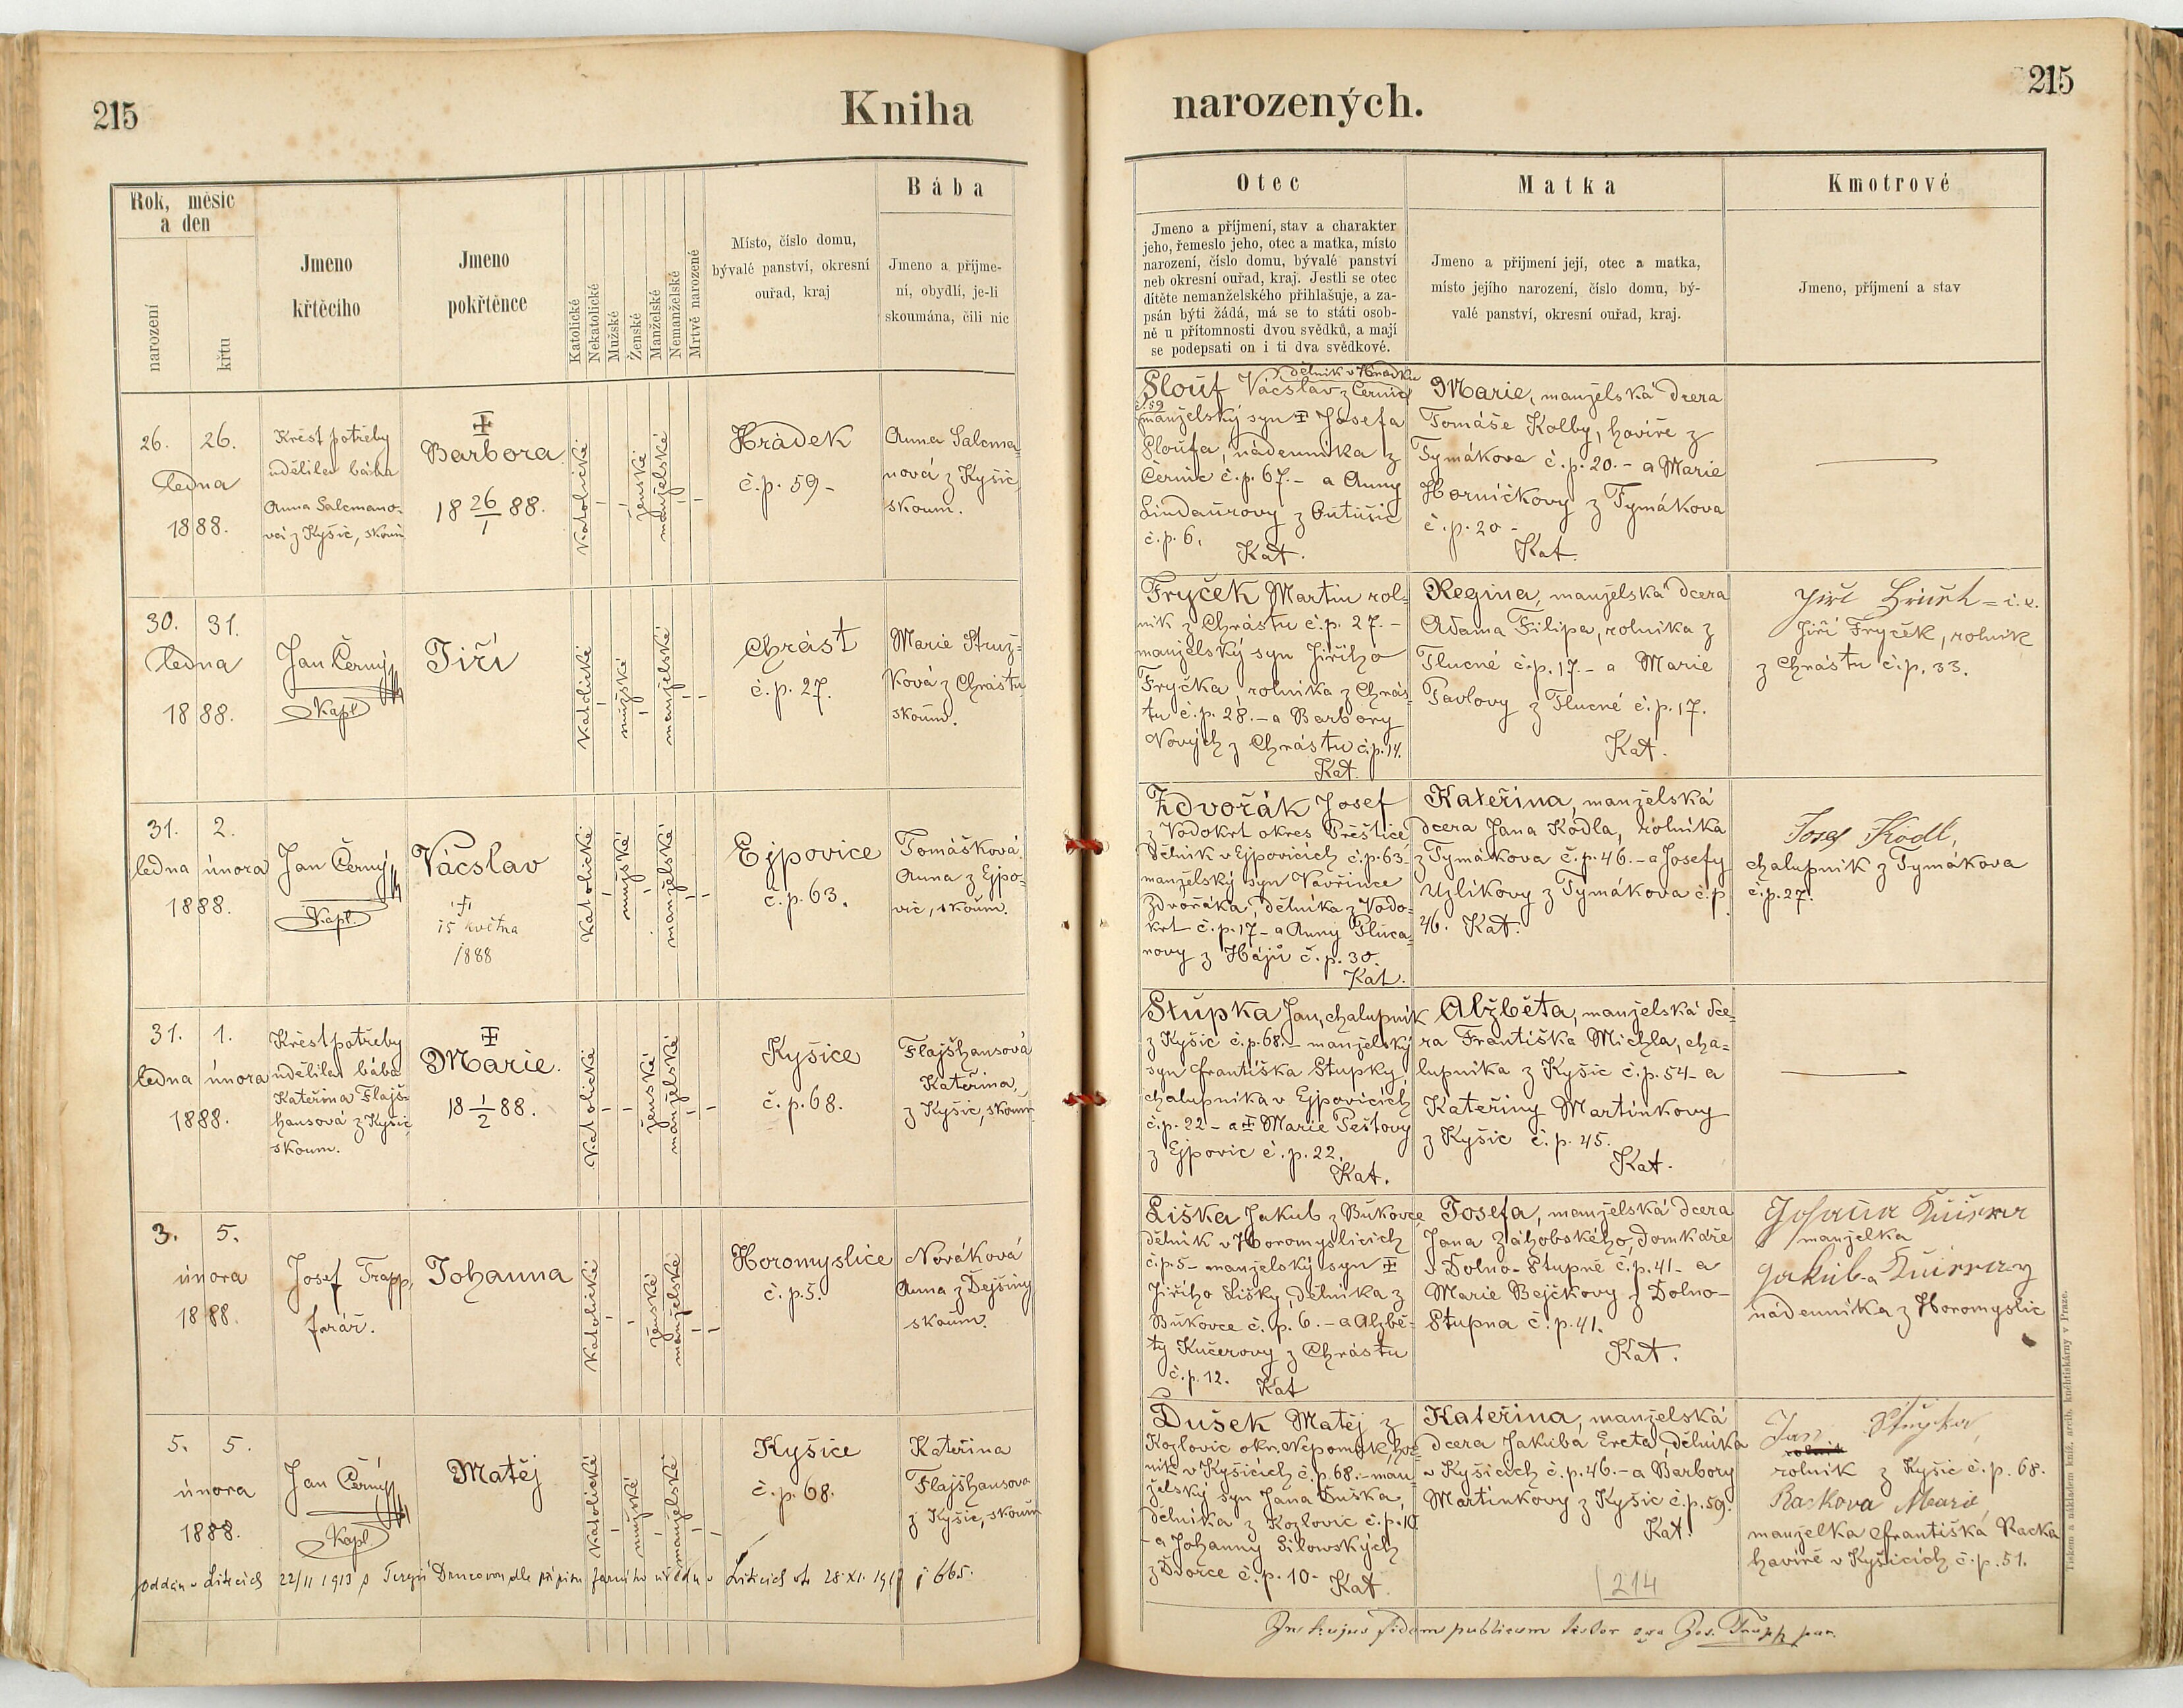 215
Kniha
narozených.
215
Rok, měsíc
a den
narození
křtu
Jmeno
křtěcího
Jmeno
pokřtěnce
Katolické
Nekatolické
Mužské
Ženské
Manželské
Nemanželské
Mrtvě narozené
Místo, číslo domu,
bývalé panství, okresní
ouřad, kraj
Bába
Jmeno a příjme-
ní, obydlí, je-li
skoumána, čili nic
Otec
Jmeno a příjmení, stav a charakter
jeho, řemeslo jeho, otec a matka, místo
narození, číslo domu, bývalé panství
neb okresní ouřad, kraj. Jestli se otec
dítěte nemanželského přihlašuje, a za-
psán býti žádá, má se to státi osob-
ně u přítomnosti dvou svědků, a mají
se podepsati on i ti dva svědkové.
Matka
Jmeno a příjmení její, otec a matka,
místo jejího narození, číslo domu, bý-
valé panství, okresní ouřad, kraj.
Kmotrové
Jmeno, příjmení a stav
26. 26.
ledna
1888.
Křest potřeby
udělila bába
Anna Salcmano-
vá z Kyšic, skoum
Barbora
18 26/1 88.
Katolické
ženské
manželské
Hrádek
č. p. 59 -
Anna Salcma-
nová z Kyšic,
skoum.
dělník v Hrádku
Plouf Vácslav z Černic
č. 59
manželský syn Josefa
Ploufa, nádenníka z
Černic č. p. 67. - a Anny
Lindaurovy z Outušic
č. p. 6.
Kat.
Marie, manželská dcera
Tomáše Kolby, havíře z
Tymákova č. p. 20. - a Marie
Horníčkovy z Tymákova
č. p. 20 -
Kat.
30. 31.
ledna
1888.
Jan Černý
Kapl.
Jiří
Katolické
mužské
manželské
Chrást
č. p. 27.
Marie Struž-
ková z Chrástu
skoum.
Fryček Martin rol-
ník z Chrástu č. p. 27. -
manželský syn Jiřího
Fryčka, rolníka z Chrás-
tu č. p. 28. - a Barbory
Nových z Chrástu č. p. 14.
Kat.
Regina, manželská dcera
Adama Filipa, rolníka z
Tlucné č. p. 17. - a Marie
Pavlovy z Tlucné č. p. 17.
Kat.
Jiří
Jiří Fryček, rolník
z Chrástu č. p. 33.
31. 2.
ledna února
1888.
Jan Černý
Kapl.
Vácslav
†
15 května
1888
Katolické
mužské
manželské
Ejpovice
č. p. 63.
Tomášková
Anna z Ejpo-
vic, skoum.
Zdvořák Josef
z Vodokrt okres Přeštice
dělník v Ejpovicích č. p. 63 -
manželský syn Vavřince
Zdvořáka, dělníka z Vodo-
krt č. p. 17 - a Anny Pluca-
rovy z Hájů č. p. 30.
Kat.
Kateřina, manželská
dcera Jana Kódla, rolníka
z Tymákova č. p. 46. - a Josefy
Uzlíkovy z Tymákova č. p.
46. Kat.
Josef Ködl,
chalupník z Tymákova
č. p. 27.
31. 1.
ledna února
1888.
Křest potřeby
udělila bába
Kateřina Flajš-
hansová z Kyšic,
skoum.
Marie.
18 1/2 88.
Katolické
ženské
manželské
Kyšice
č. p. 68.
Flajšhansová
Kateřina,
z Kyšic, skoum
Stupka Jan, chalupník
z Kyšic č. p. 68. - manželský
syn Františka Stupky,
chalupníka v Ejpovicích
č. p. 22 - a Marie Peštovy
z Ejpovic č. p. 22.
Kat.
Alžběta, manželská dce-
ra Františka Michla, cha-
lupníka z Kyšic č. p. 54 - a
Kateřiny Martínkovy
z Kyšic č. p. 45.
Kat.
3. 5.
února
1888.
Josef Trapp,
farář.
Johanna
Katolické
ženské
manželské
Horomyslice
č. p. 5.
Nováková
Anna z Dejšiny
skoum.
Liška Jakub z Bukovce
dělník v Horomyslicích
č. p. 5 - manželský syn
Jiřího Lišky, dělníka z
Bukovce č. p. 6. - a Alžbě-
ty Kučerovy z Chrástu
č. p. 12. Kat
Josefa, manželská dcera
Jana Záhobského, domkáře
v Dolno-Stupně č. p. 41 - a
Marie Bejčkovy z Dolno-
Stupna č. p. 41.
Kat.
manželka
nádenníka z Horomyslic
5. 5.
února
1888.
Jan Černý
Kapl.
Matěj
Katolické
mužské
manželské
Kyšice
č. p. 68.
Kateřina
Flajšhansova
z Kyšic, skoum
Dušek Matěj z
Kozlovic okr. Nepomuk, hor-
ník v Kyšicích č. p. 68. - man-
želský syn Jana Duška,
dělníka z Kozlovic č. p. 10
- a Johanny Silowských
z Dvorce č. p. 10 - Kat.
Kateřina, manželská
dcera Jakuba Ereta, dělníka
v Kyšicích č. p. 46. - a Barbory
Martínkovy z Kyšic č. p. 59.
Kat.
Jan Stupka,
rolník z Kyšic č. p. 68.
Rackova Marie,
manželka Františka Racka
havíře v Kyšicích č. p. 51.
oddán v Liticích 22/11 1913 s Terezií dle přípisu farního úřadu v Liticích
214
In hujus fidem publicam testor Jos. Trapp par.
Tiskem a nákladem kníž. arcib. knihtiskárny v Praze.